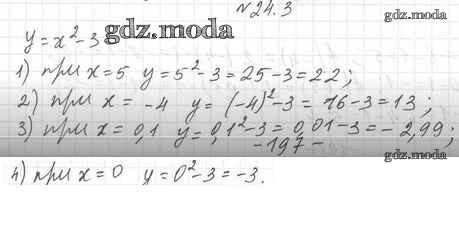 №24.3
gdz.moda
y = x² - 3 gdz.moda
1) при x = 5 y = 5² - 3 = 25 - 3 = 22;
2) при x = -4 y = (-4)² - 3 = 16 - 3 = 13;
3) при x = 0,1 y = 0,1² - 3 = 0,01 - 3 = - 2,99;
-197-
gdz.moda
4) при x = 0 y = 0² - 3 = -3.